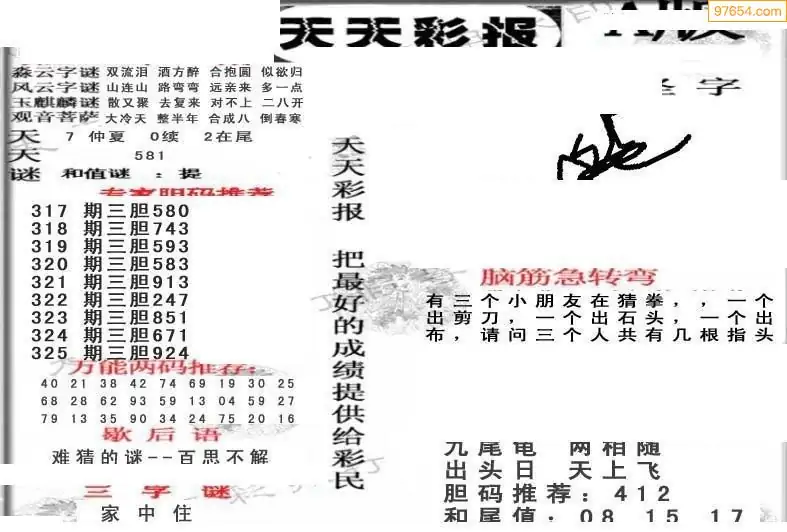 97654.com
天天彩报
森云字谜 双流泪 酒方醉 合抱圆 似欲归
风云字谜 山连山 路弯弯 远亲来 多一点
玉麒麟谜 散又聚 去复来 对不上 二八开
观音菩萨 大冷天 整半年 合成八 倒春寒
天 7 仲夏 0续 2在尾
天 581
谜 和值谜 ：提
专家胆码推荐
317 期三胆580
318 期三胆743
319 期三胆593
320 期三胆583
321 期三胆913
322 期三胆247
323 期三胆851
324 期三胆671
325 期三胆924
万能两码推荐：
40 21 38 42 74 69 19 30 25
68 28 62 93 59 13 04 59 27
79 13 35 90 34 24 75 20 16
歇后语
难猜的谜--百思不解
三字谜
家中住
天天彩报 把最好的成绩提供给彩民
字
脑筋急转弯
有三个小朋友在猜拳，，一个
出剪刀，一个出石头，一个出
布，请问三个人共有几根指头
九尾龟 两相随
出头日 天上飞
胆码推荐：412
和尾值：08 15 17